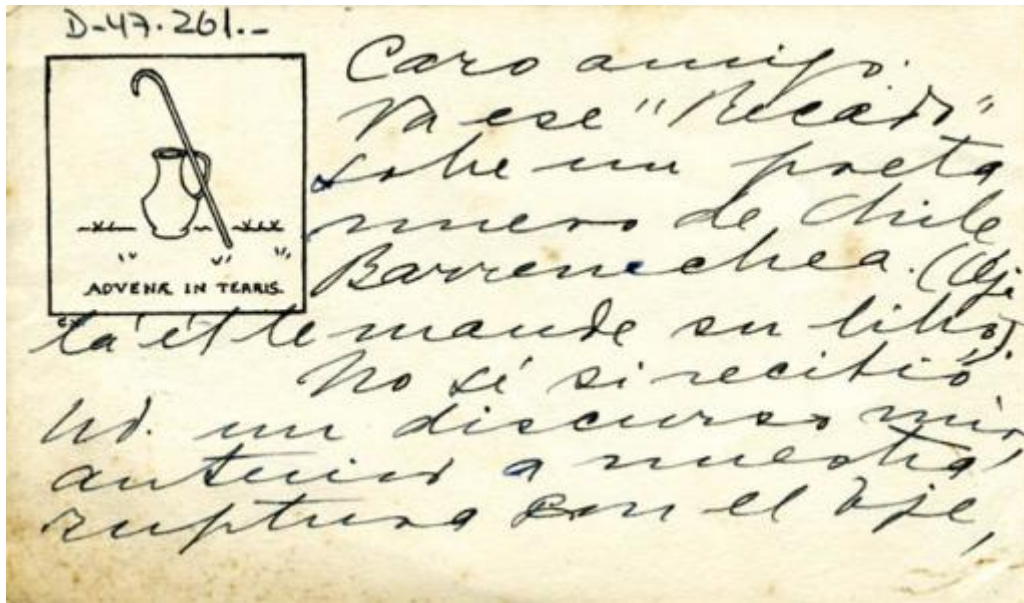 D-47.261.-
ADVENA IN TERRIS.
Caro amigo.
Va ese "Recado"
sobre un poeta
nuevo de Chile
Barrenechea. (Oja
lá él te mande su libro).
No sé si recibió
Ud. un discurso mío,
anterior a nuestra
ruptura con el Eje,